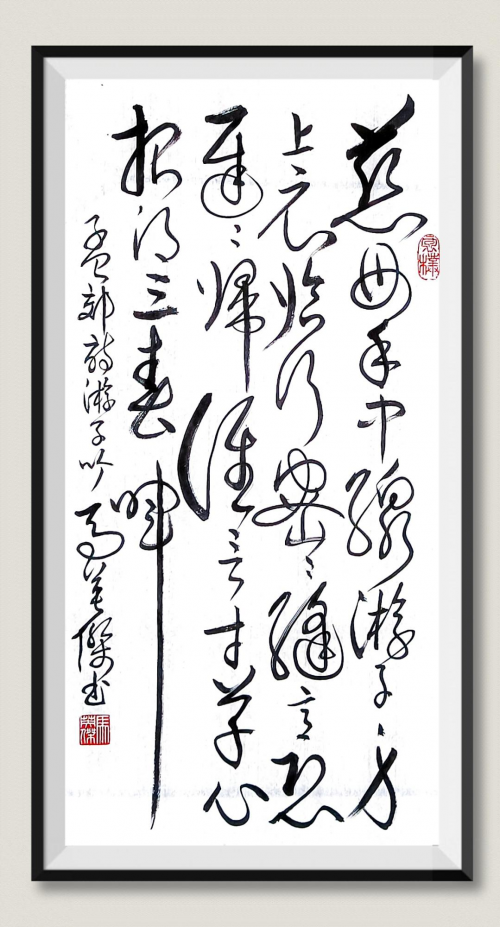 慈母手中線游子身
上衣臨行密〻縫意恐
遲〻歸誰言寸草心
報得三春暉
孟郊詩游子吟 馬英傑書
馬英傑